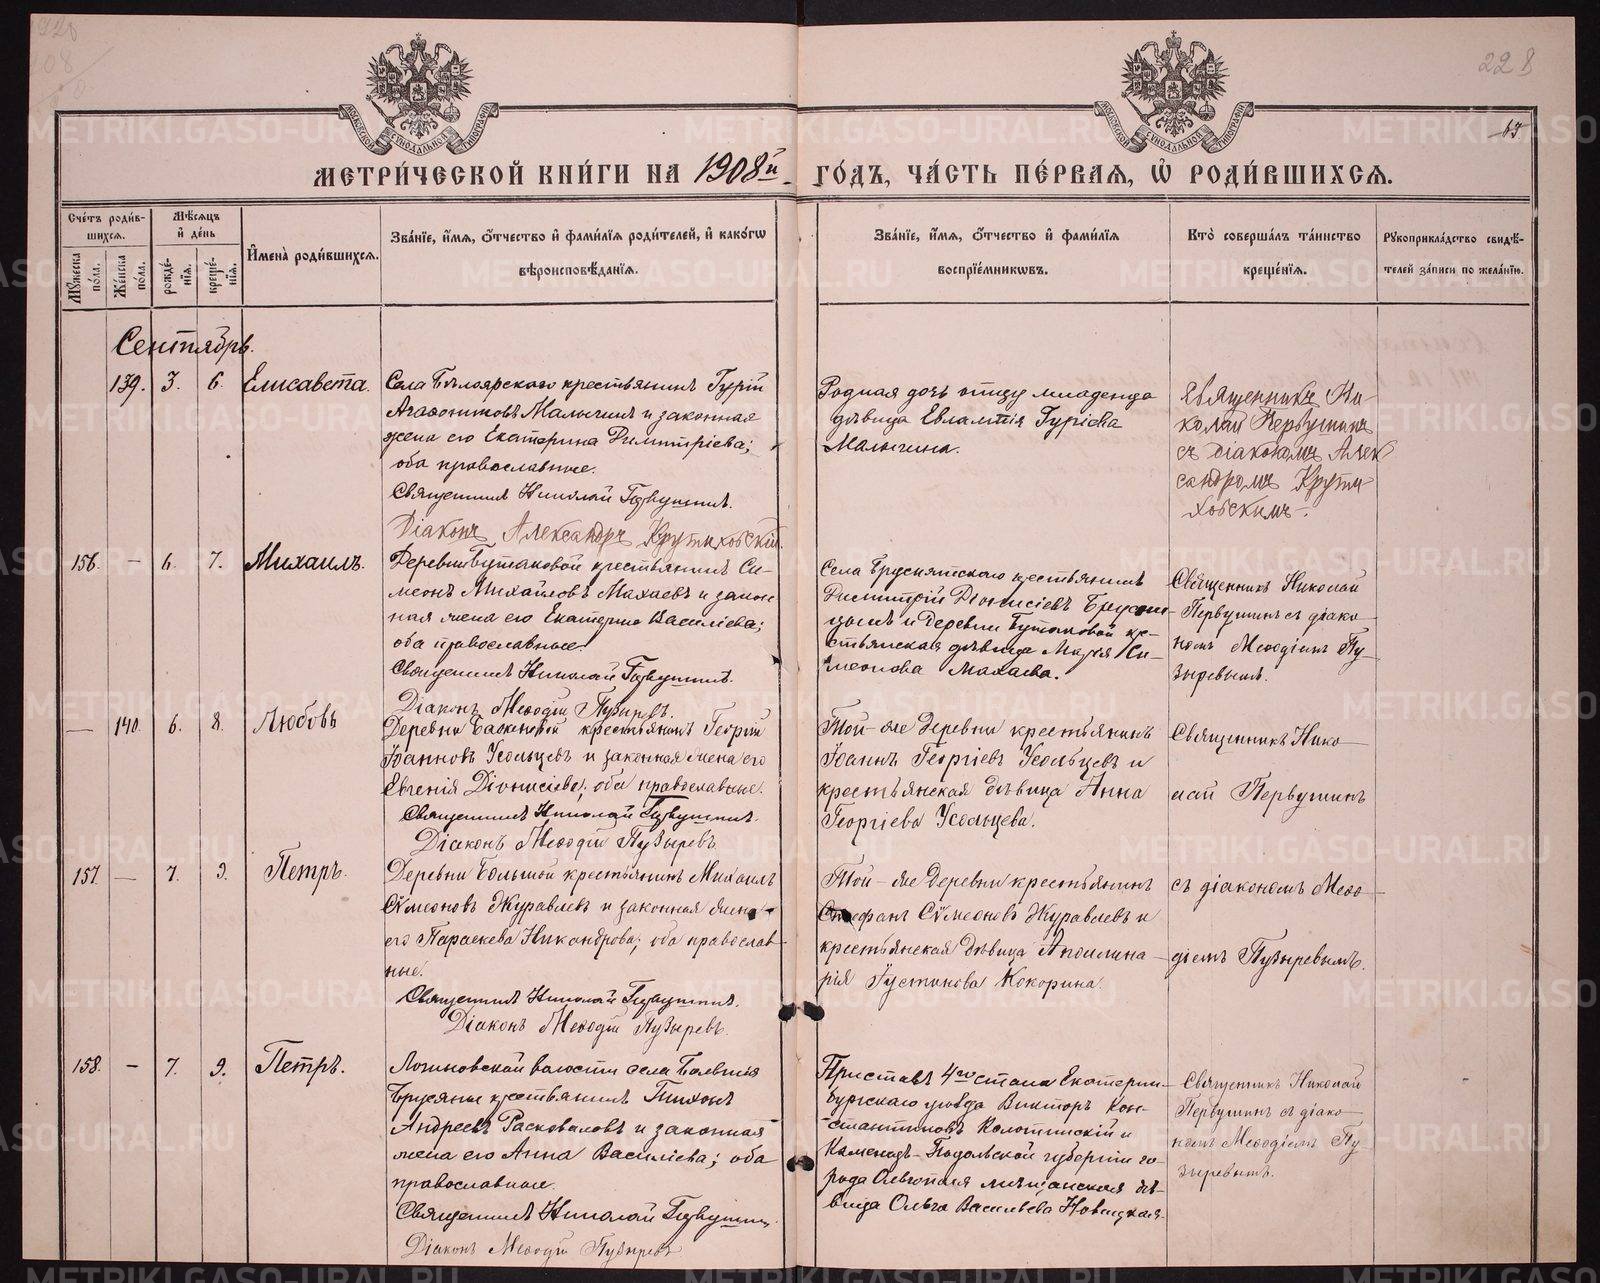 228
63
МЕТРИ́ЧЕСКОЙ КНИ́ГИ НА 1908й ГО́ДЪ, ЧА́СТЬ ПЕ́РВАЯ, Ѡ҆ РОДИ́ВШИХСЯ.
Сче́тъ роди́в-
шихся.
Мꙋ́жеска
по́ла.
Же́нска
по́ла.
Мѣ́сяцъ
и҆ де́нь
рожде́-
нїя.
креще́-
нїя.
И҆мена̀ роди́вшихся.
Зва́нїе, и҆́мя, ѻ҆́тчество и҆ фами́лїя роди́телей, и҆ како́гѡ
вѣроисповѣ́данїя.
Зва́нїе, и҆́мя, ѻ҆́тчество и҆ фами́лїя
воспрїе́мникѡвъ.
Кто̀ соверша́лъ та́инство
креще́нїя.
Рꙋкоприкла́дство свидѣ́-
телей за́писи по жела́нїю.
Сентябрь.
139. 3. 6. Елисавета.
Села Бѣлоярскаго крестьянинъ Гурій
Агаѳониковъ Малыгинъ и законная
жена его Екатерина Димитріева;
оба православные.
Священникъ Николай Первушинъ.
Діаконъ Александръ Крутиховскій.
Родная дочь отцу младенца
дѣвица Евлампія Гуріева
Малыгина.
Священникъ Ни-
колай Первушинъ
съ діакономъ Алек
сандромъ Крути-
ховскимъ.
156. – 6. 7. Михаилъ.
Деревни Бутаковой крестьянинъ Си-
меонъ Михайловъ Махаевъ и закон
ная жена его Екатерина Василіева;
оба православные.
Священникъ Николай Первушинъ.
Діаконъ Меѳодій Пузыревъ.
Села Бруснятскаго крестьянинъ
Димитрій Діонисіевъ Брусни-
цынъ и деревни Бутаковой кре-
стьянская дѣвица Марія Си-
меонова Махаева.
Священникъ Николай
Первушинъ съ діако-
номъ Меѳодіемъ Пу-
зыревымъ.
– 140. 6. 8. Любовь
Деревни Баженовой крестьянинъ Георгій
Іоанновъ Усольцевъ и законная жена его
Евгенія Діонисіева; оба православные.
Священникъ Николай Первушинъ.
Діаконъ Меѳодій Пузыревъ.
Той-же деревни крестьянинъ
Іоаннъ Георгіевъ Усольцевъ и
крестьянская дѣвица Анна
Георгіева Усольцева.
Священникъ Нико-
лай Первушинъ
157. – 7. 9. Петръ.
Деревни Большой крестьянинъ Михаилъ
Сѵмеоновъ Журавлевъ и законная жена
его Параскева Никандрова; оба православ-
ные.
Священникъ Николай Первушинъ.
Діаконъ Меѳодій Пузыревъ.
Той-же деревни крестьянинъ
Стефанъ Сѵмеоновъ Журавлевъ и
крестьянская дѣвица Аполлина-
рія Іустинова Кокорина.
съ діакономъ Меѳо-
діемъ Пузыревымъ.
158. – 7. 9. Петръ.
Логиновской волости села Большія
Брусяны крестьянинъ Тихонъ
Андреевъ Расковаловъ и законная
жена его Анна Василіева; оба
православные.
Священникъ Николай Первушинъ.
Діаконъ Меѳодій Пузыревъ
Приставъ 4го стана Екатерин-
бургскаго уѣзда Викторъ Кон-
стантиновъ и
Каменецъ-Подольской губерніи го-
рода Ольгополя мѣщанская дѣ-
вица Ольга Васильева Новицкая.
Священникъ Николай
Первушинъ съ діако-
номъ Меѳодіемъ Пу-
зыревымъ.
METRIKI.GASO-URAL.RU